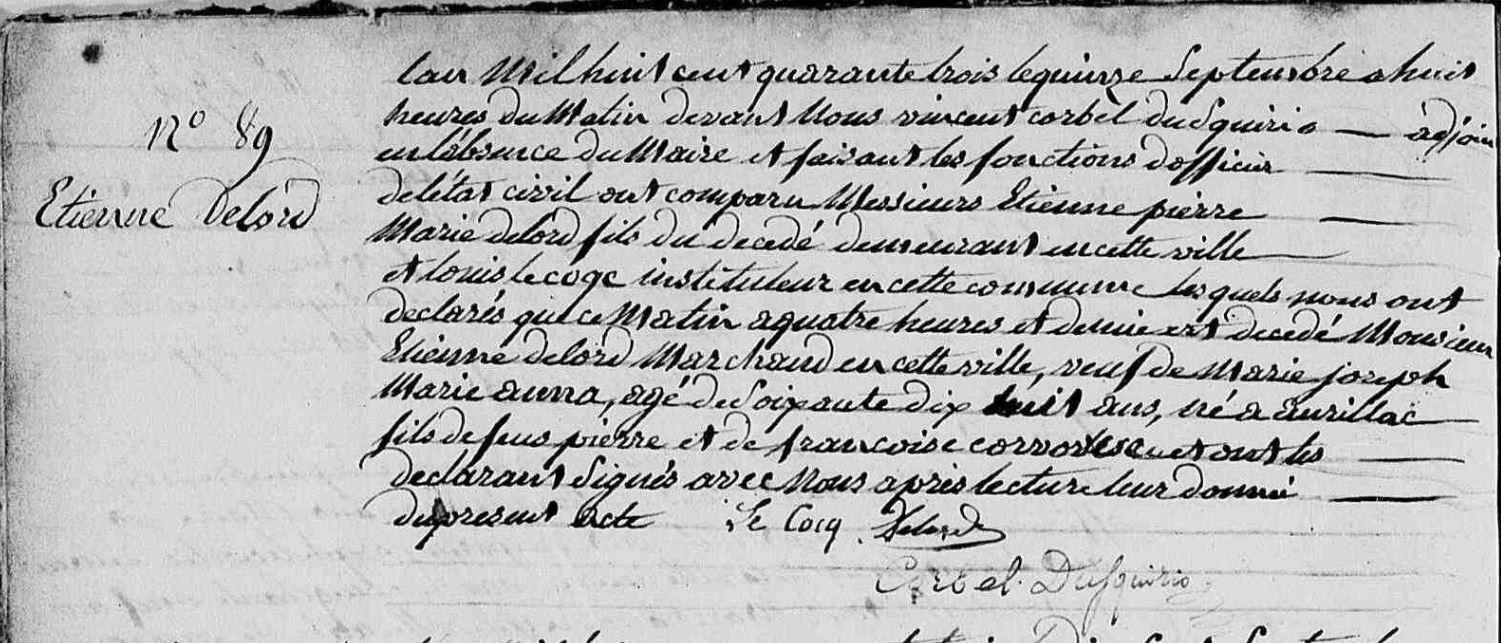 N° 89
Etienne Delord
lan Mil huit cent quarante trois le quinze Septembre a huit
heures du Matin devant Nous vincent corbel du Squirio adjoin
en l'absence du Maire et faisant les fonctions d'officier
de létat civil ont comparu Messieurs Etienne pierre
Marie delord fils du decedé demeurant en cette ville
et louis le cogc instituteur en cette commune lesquels nous ont
declarés que ce Matin a quatre heures et demie est decedé Monsieur
Etienne delord Marchand en cette ville, veuf de Marie joseph
Marie anna, agé de Soixante dix huit ans, né a aurillac
fils de feus pierre et de francoise et ont les
declarant Signés avec Nous après lecture leur donné
du present acte Le Cocq Delord
Corbel Dusquirio